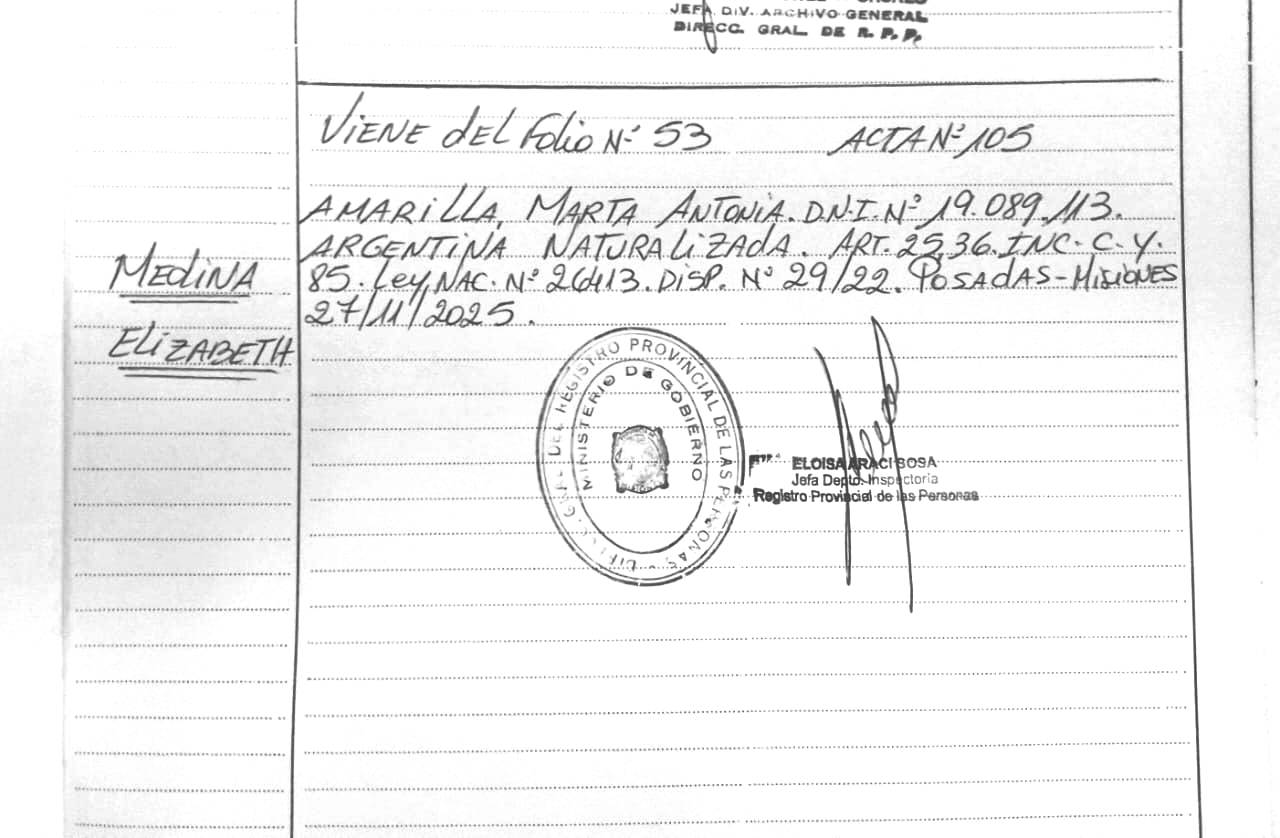 JEFA DIV. ARCHIVO GENERAL
DIRECC. GRAL. DE R. P. P.
VIENE del Folio Nº 53 ACTA Nº 105
AMARILLA, MARTA ANTONIA. D.N.I. Nº 19.089.113.
ARGENTINA NATURALIZADA. ART. 25,36. INC. C. Y.
85. Ley, NAC. Nº 26413. DISP. Nº 29/22. POSADAS-MISIONES
27/11/2025.
MEDINA
ELIZABETH
DEL REGISTRO PROVINCIAL DE LAS PERSONAS
MINISTERIO DE GOBIERNO
ELOISA ARACI SOSA
Jefa Depto. Inspectoria
Registro Provincial de las Personas